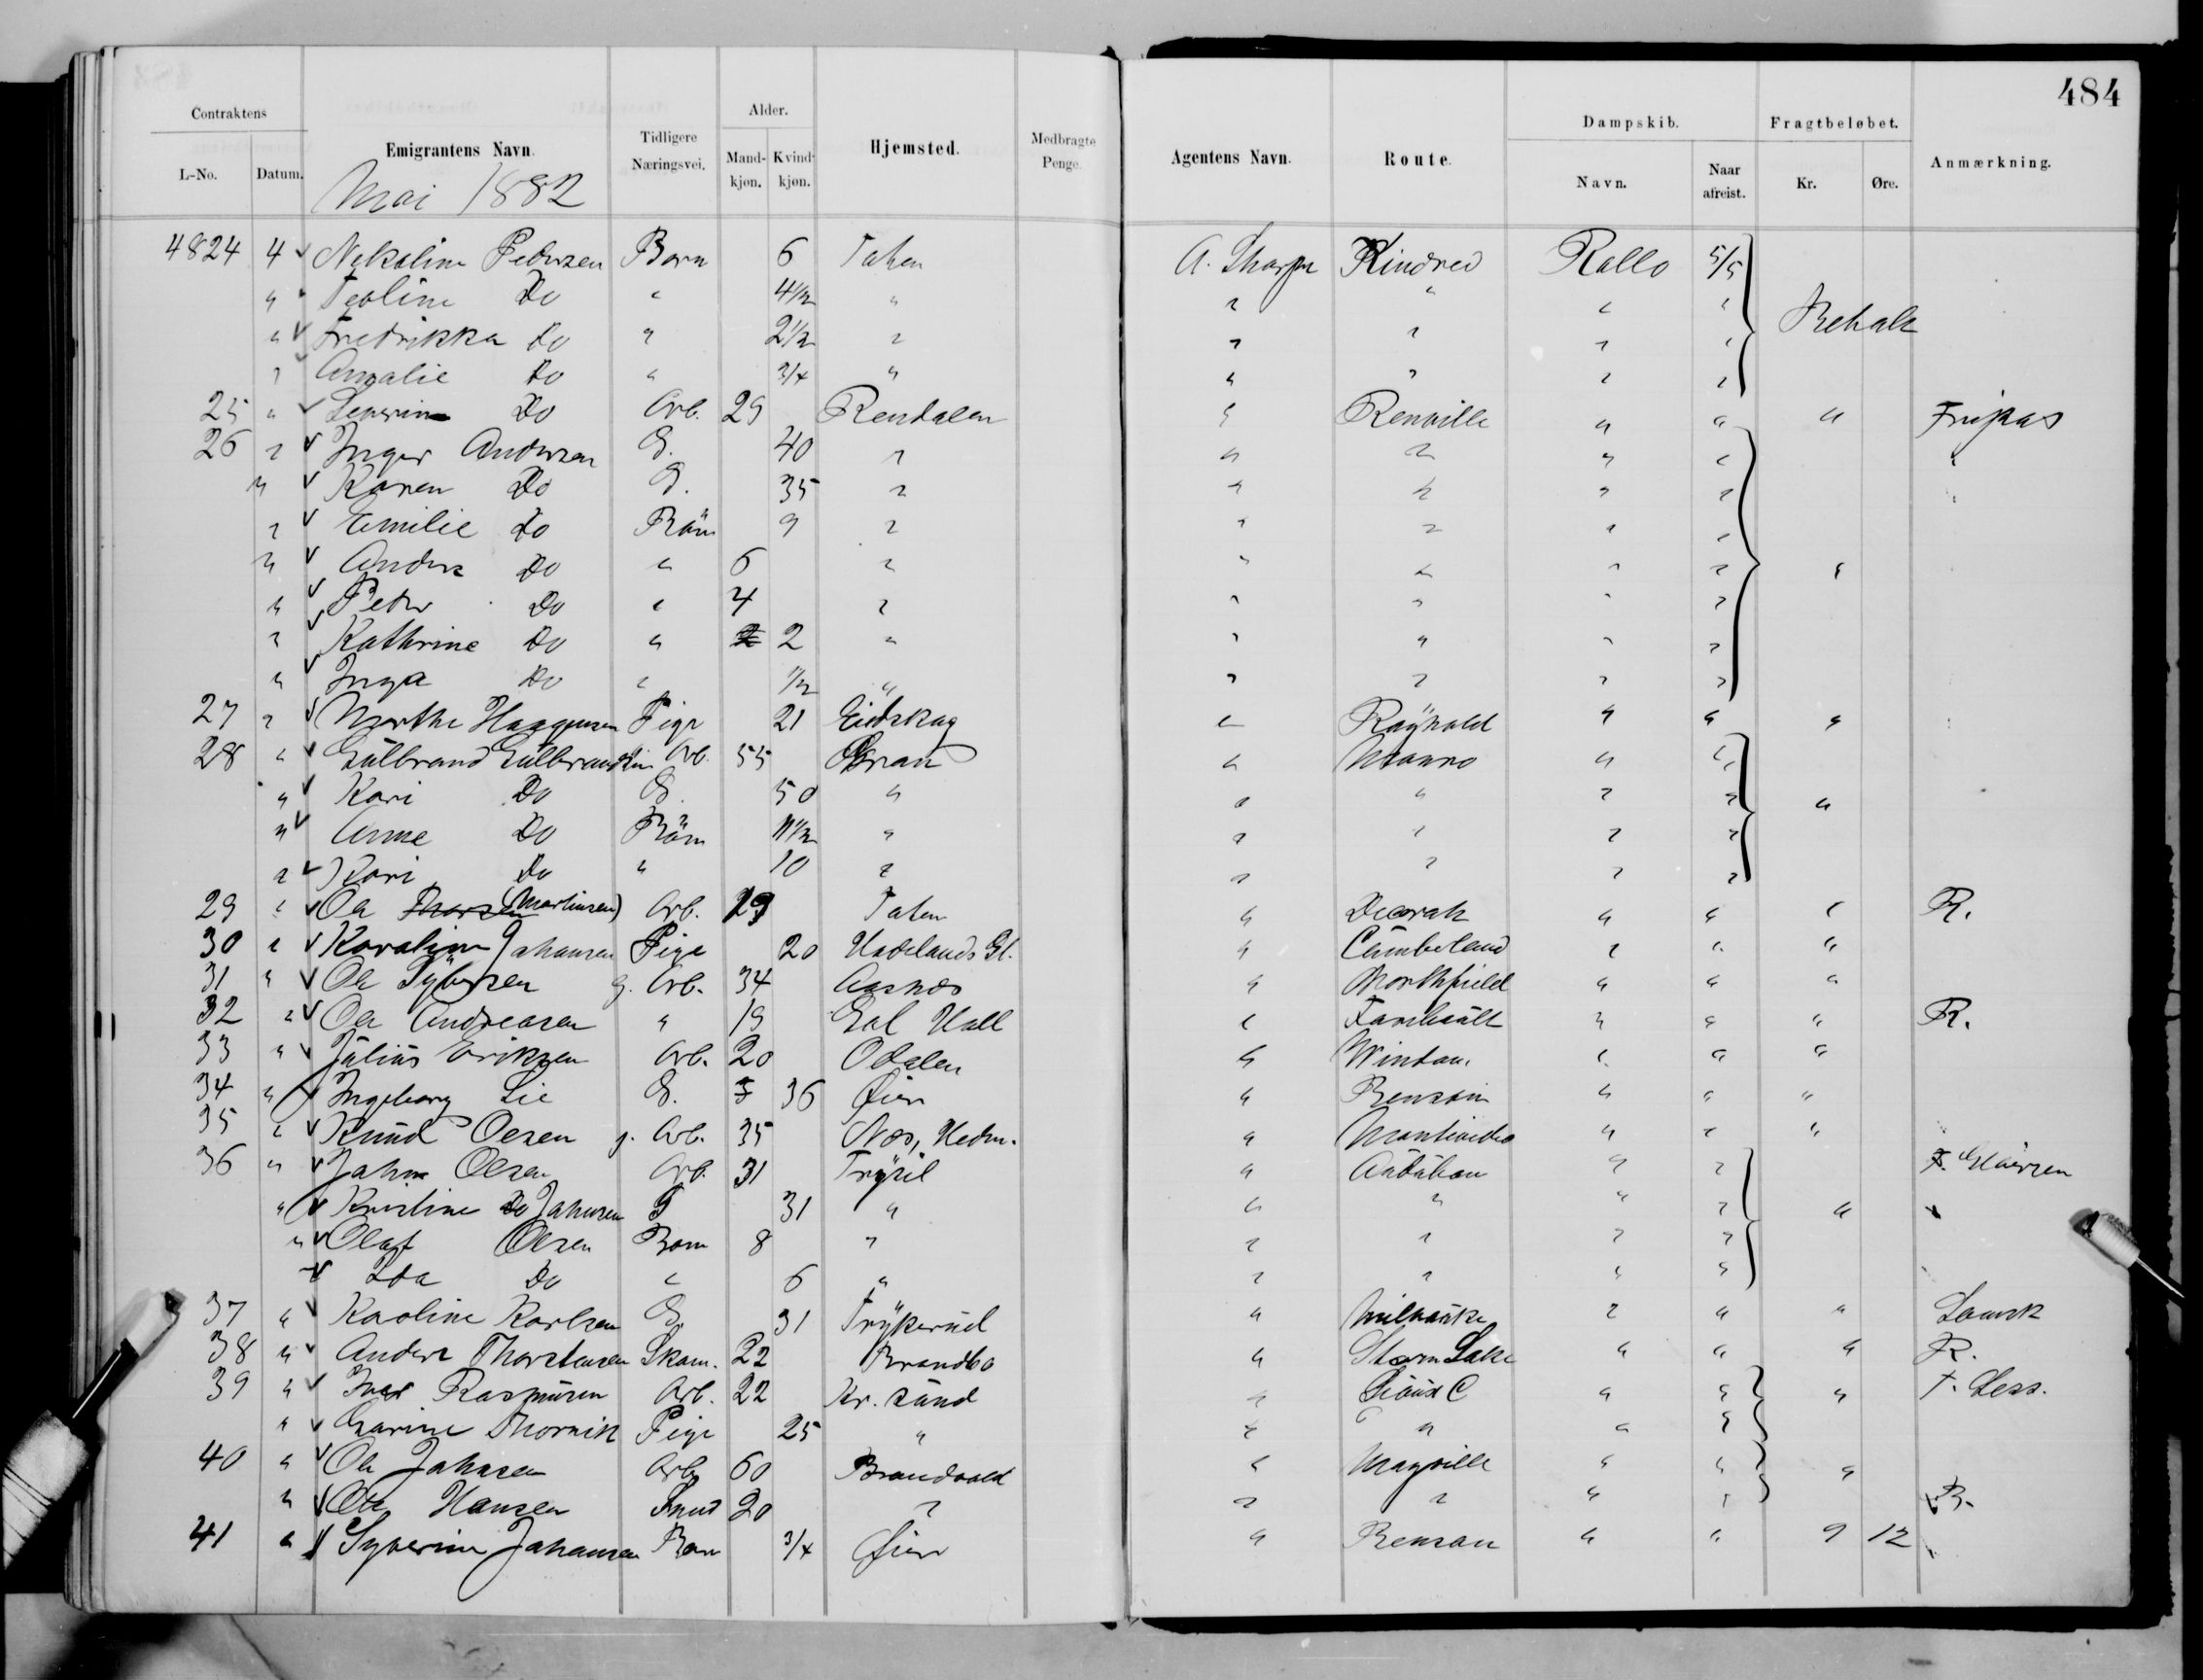 484
Contraktens Emigrantens Navn. Tidligere Næringsvei. Alder. Hjemsted. Medbragte Penge. Agentens Navn. Route. Dampskib. Fragtbeløbet. Anmærkning.
L-No. Datum. Mandkjøn. Kvindkjøn. Navn. Naar afreist. Kr. Øre.
Mai 1882
4824 4 Nikoline Pedersen Barn 6 Toten A. Sharpe Kindred Rollo 5/5
" Do " 4 1/2 " " " " "
" Fredrikka Do " 2 1/2 " " " " " Betalt
" Amalie Do " 3/4 " " " " "
25 " Severin Do Arb. 29 Rendalen " Renville " " " Fripas
26 " Inger Andersen G. 40 " " " " " "
" Karen Do G. 35 " " " " "
" Emilie Do Barn 9 " " " " "
" Anders Do " 6 " " " " " "
" Peder Do " 4 " " " " "
" Kathrine Do " 2 " " " " "
" Inga Do " 1/2 " " " " "
27 " Marthe Haagensen Pige 21 Eidskog " " " "
28 " Gulbrand Gulbrandsen Arb. 55 Gran " " "
" Kari Do G. 50 " " " " " "
" Anne Do Barn 11 1/2 " " " " "
" Kari Do " 10 " " " " "
29 " Ole Thorsen (Martinsen) Arb. 29 Toten " Decorah " " " R.
30 " Karoline Johansen Pige 20 Hadelands Gl. " " " "
31 " Ole Syversen g. Arb. 34 Aasnes " Northfield " " "
32 " Ole Andreasen " 19 Gol Hall " " " " R.
33 " Julius Eriksen Arb. 20 Odalen " " " "
34 " Ingeborg Lie G. 36 Øier " Benson " " "
35 " Knud Olsen g. Arb. 35 Nes, Hedm. " Montivideo " " "
36 " Johan Olsen Arb. 31 Trysil " " "
" Kristine Do Johnsen G 31 " " " " " "
" Olaf Olsen Barn 8 " " " " "
Ida Do " 6 " " " " "
37 " Karoline Karlsen G. 31 " Milwauke " " "
38 " Anders Thorstensen Skom. 22 Brandbo " Storm Lake " " " R.
39 " Rasmusen Arb. 22 Kr. sund " Sioux C " " " F. Less.
" Pige 25 " " " " "
40 " Ole Johnsen Arb. 60 Brandvold " Mayville " " "
" Hansen 20 " " " " " R.
41 " Syverine Johansen Barn 3/4 Øier " Benson " " 9 12